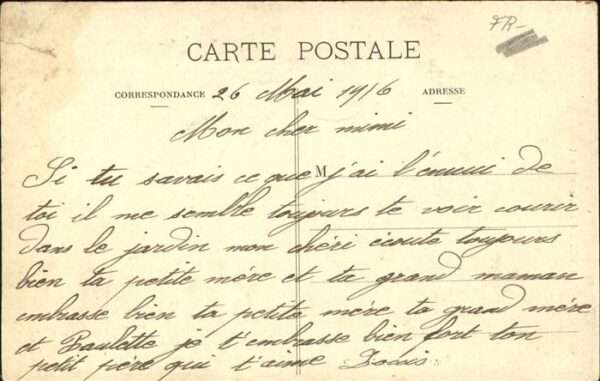 FR-
CARTE POSTALE
CORRESPONDANCE 26 Mai 1916 ADRESSE
Mon cher mimi
Si tu savais ce que M j'ai l'ennui de
toi il me semble toujours te voir courir
dans le jardin mon chéri écoute toujours
bien ta petite mére et ta grand maman
embrasse bien ta petite mére ta grand mére
et Paulette je t'embrasse bien fort ton
petit pére qui t'aime Louis